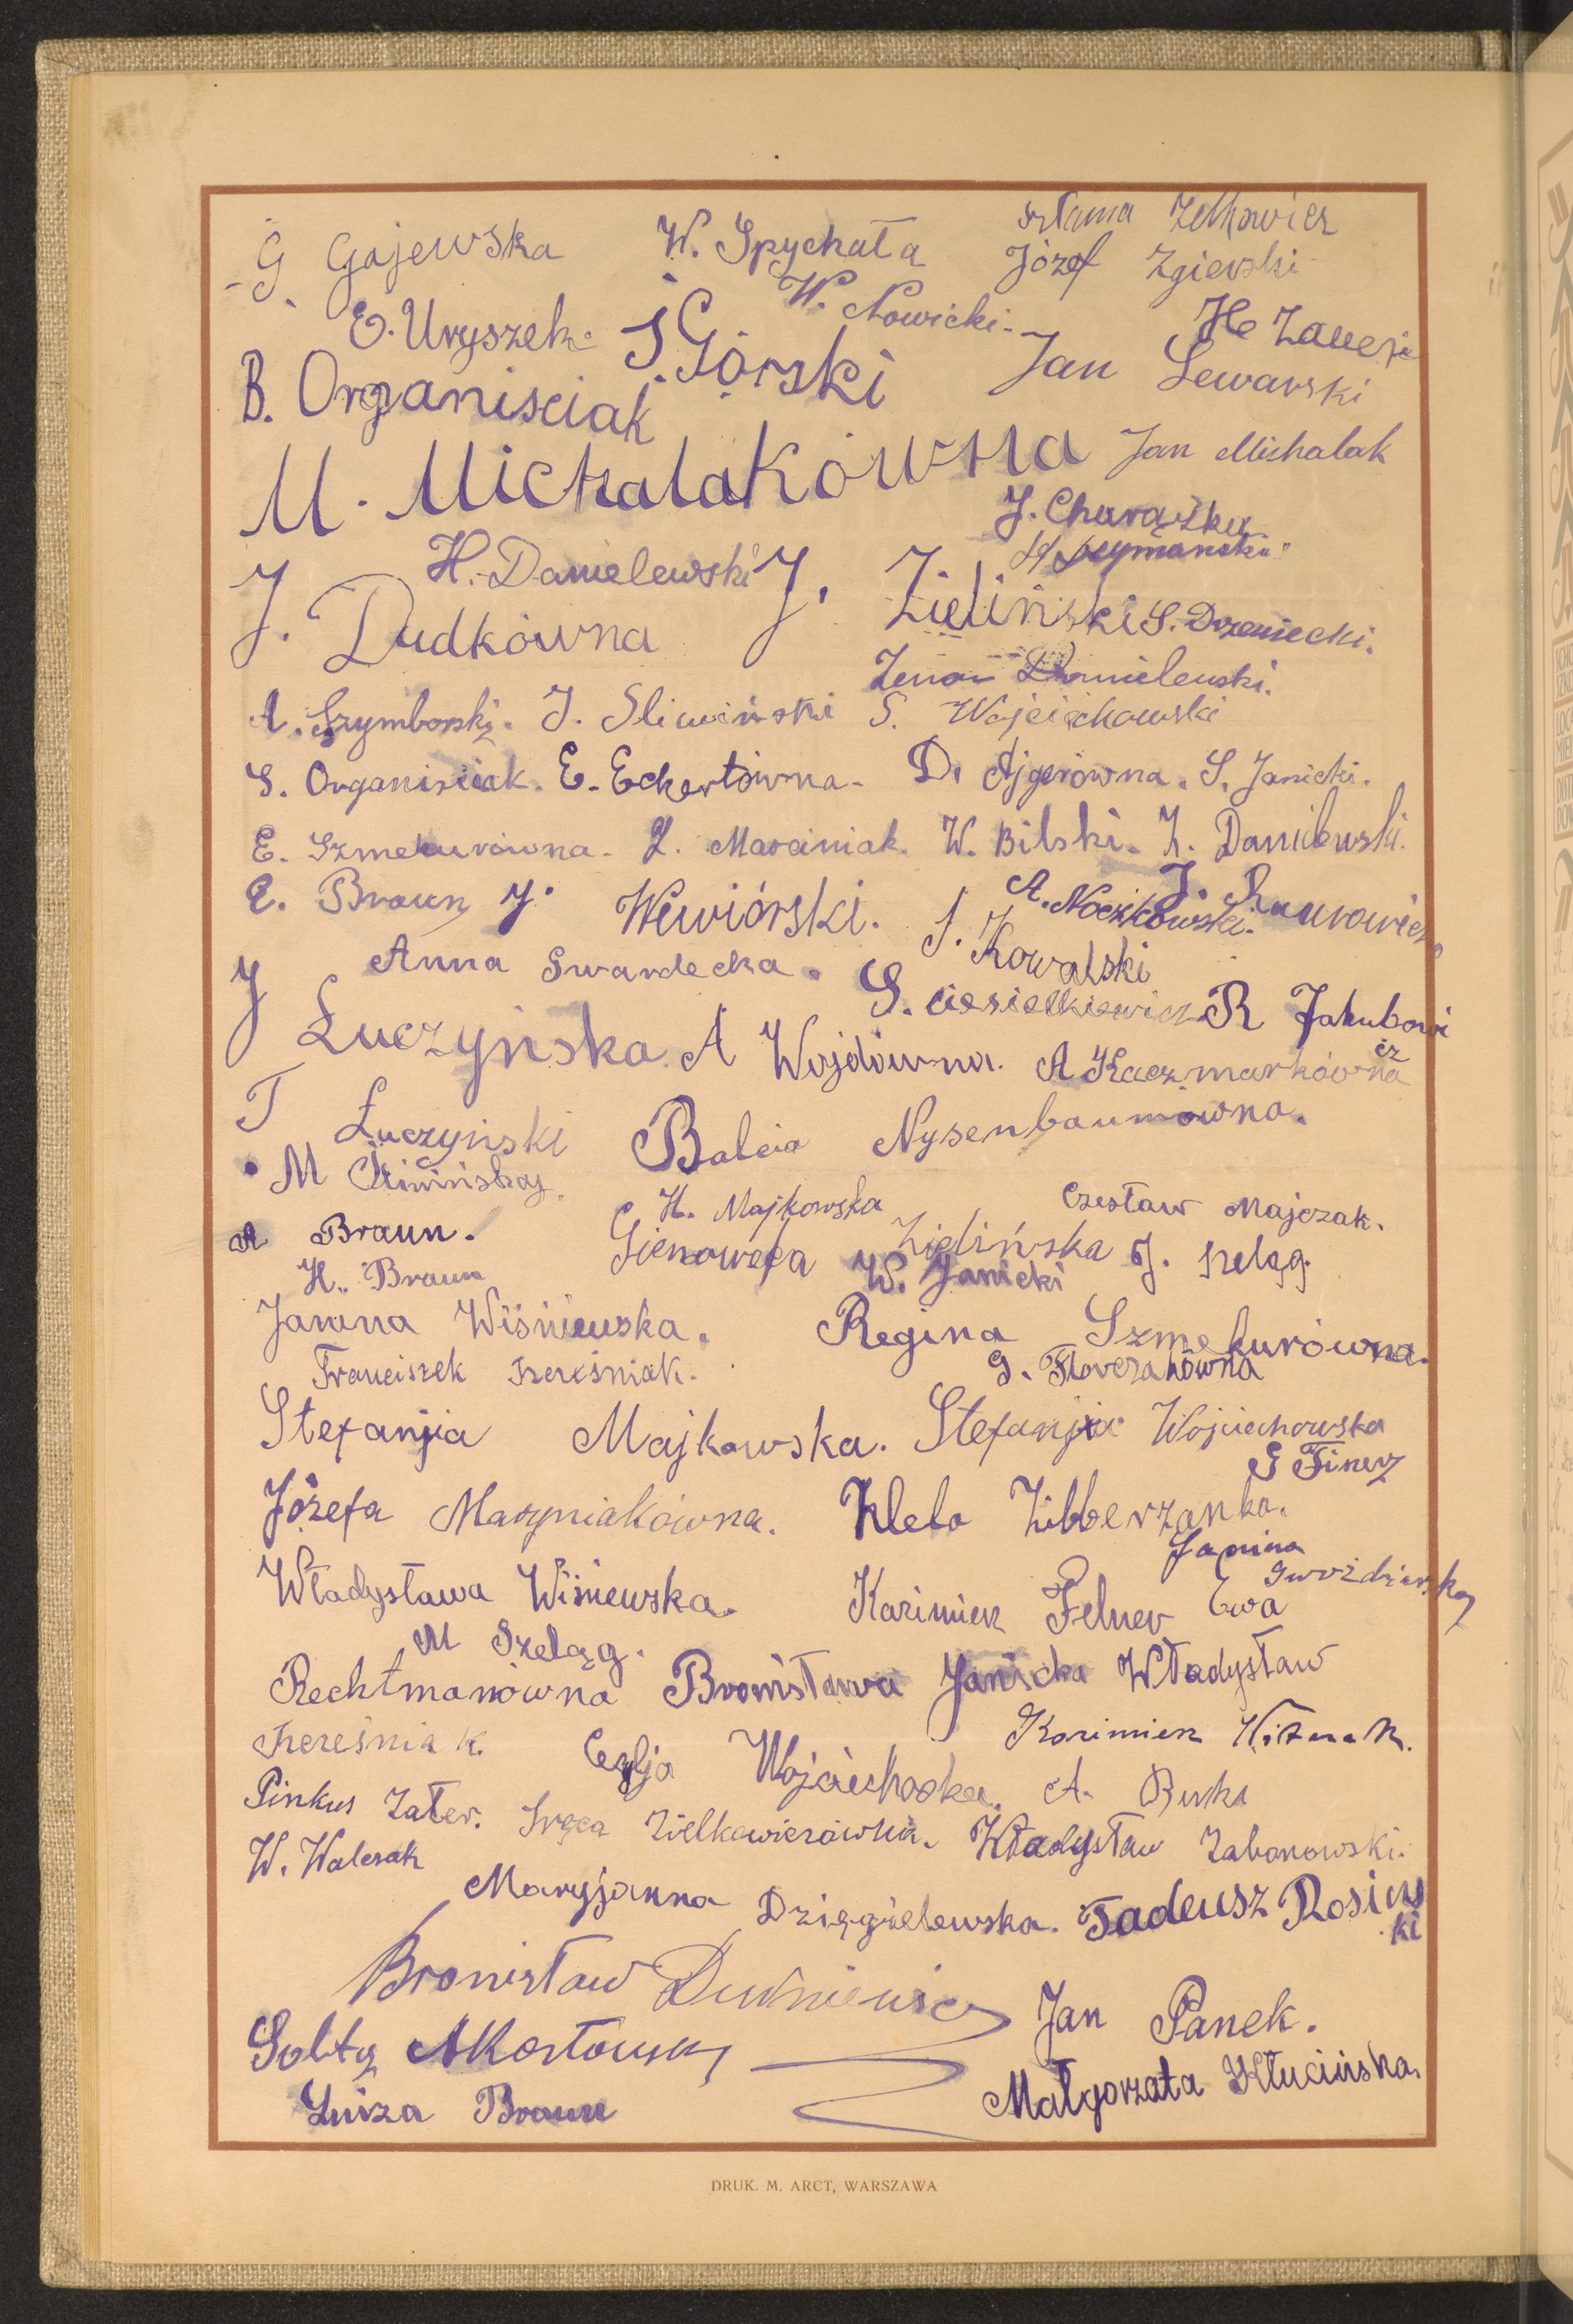 G Gajewska W. Spychała Szlama Zelkowicz
Józef Zgierski
W. Nowicki.
E. Uryszek. J Górski
B. Organiściak Jan Lewarski
M. Michalakówna Jan Michalak
J. Charążka
H. Danielewski J. Zieliński H Szymański
J. Dudkówna S. Drzewiecki.
Zenon Danielewski.
A. Szymborski. J. Śliwiński S. Wojciechowski
S. Organisiak. E. Eckertówna. D. Ajgerówna. S. Janicki.
E. Szmekurówna. L. Marciniak. W. Bilski. Z. Danilewski.
E. Braun J. Wewiórski. A. Noczkowski. J.
J. Kowalski
Anna Swardecka.
J Łuczyńska S. Ciesielkiewicz R Jakubowicz
A Wojdówna. A Kaczmarkówna
T Łuczyński Balcia Nysenbaumówna.
M
H. Majkowska Czesław Majczak.
A Braun. Gienowefa Zielińska J. Szeląg.
H. Braun W. Janicki
Janina Wiśniewska. Regina Szmekurówna.
Franciszek Trzesniak. G. Florczakówna
Stefanjia Majkowska. Stefanjia Wojciechowska
G Finerz
Józefa Maryniakówna. Hela Zilberżanka.
Janina Gwoździńska
Władysława Wiśniewska. Kazimierz Felner Ewa
M Szeląg.
Rechtmanówna Bronisława Janicka Władysław
Trzesniak. Cezlja Wojciehoska. Kazimierz Witzak.
Pinkus Zater. A.
Zielkowiczówna. Władysław Zabonowski.
W. Walczak
Maryjanna Dzięgielewska. Tadeusz Rosiński
Bronisław
Jan Panek.
Sołtys
Luiza Braun Małgorzata Kłucińska.
DRUK. M. ARCT, WARSZAWA